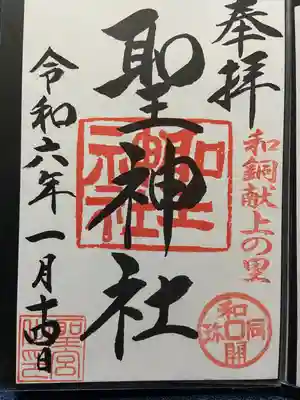 奉拝
和銅献上の里
聖神社
聖神社
和同開珎
令和六年一月十四日